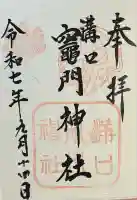 奉拝
溝口
竈門神社
令和七年九月十四日